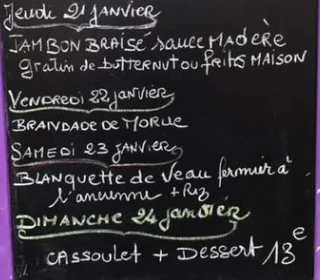 Jeudi 21 JANVIER
JAMBON BRAISÉ sauce MADÈRE
gratin de BUTTERNUT OU frites MAISON
VENDREDI 22 JANVIER
BRANDADE DE MORUE
SAMEDI 23 JANVIER
BLANQUETTE de Veau fermier à
l'ancienne + Riz
DIMANCHE 24 janvier
CASSOULET + Dessert 13 e